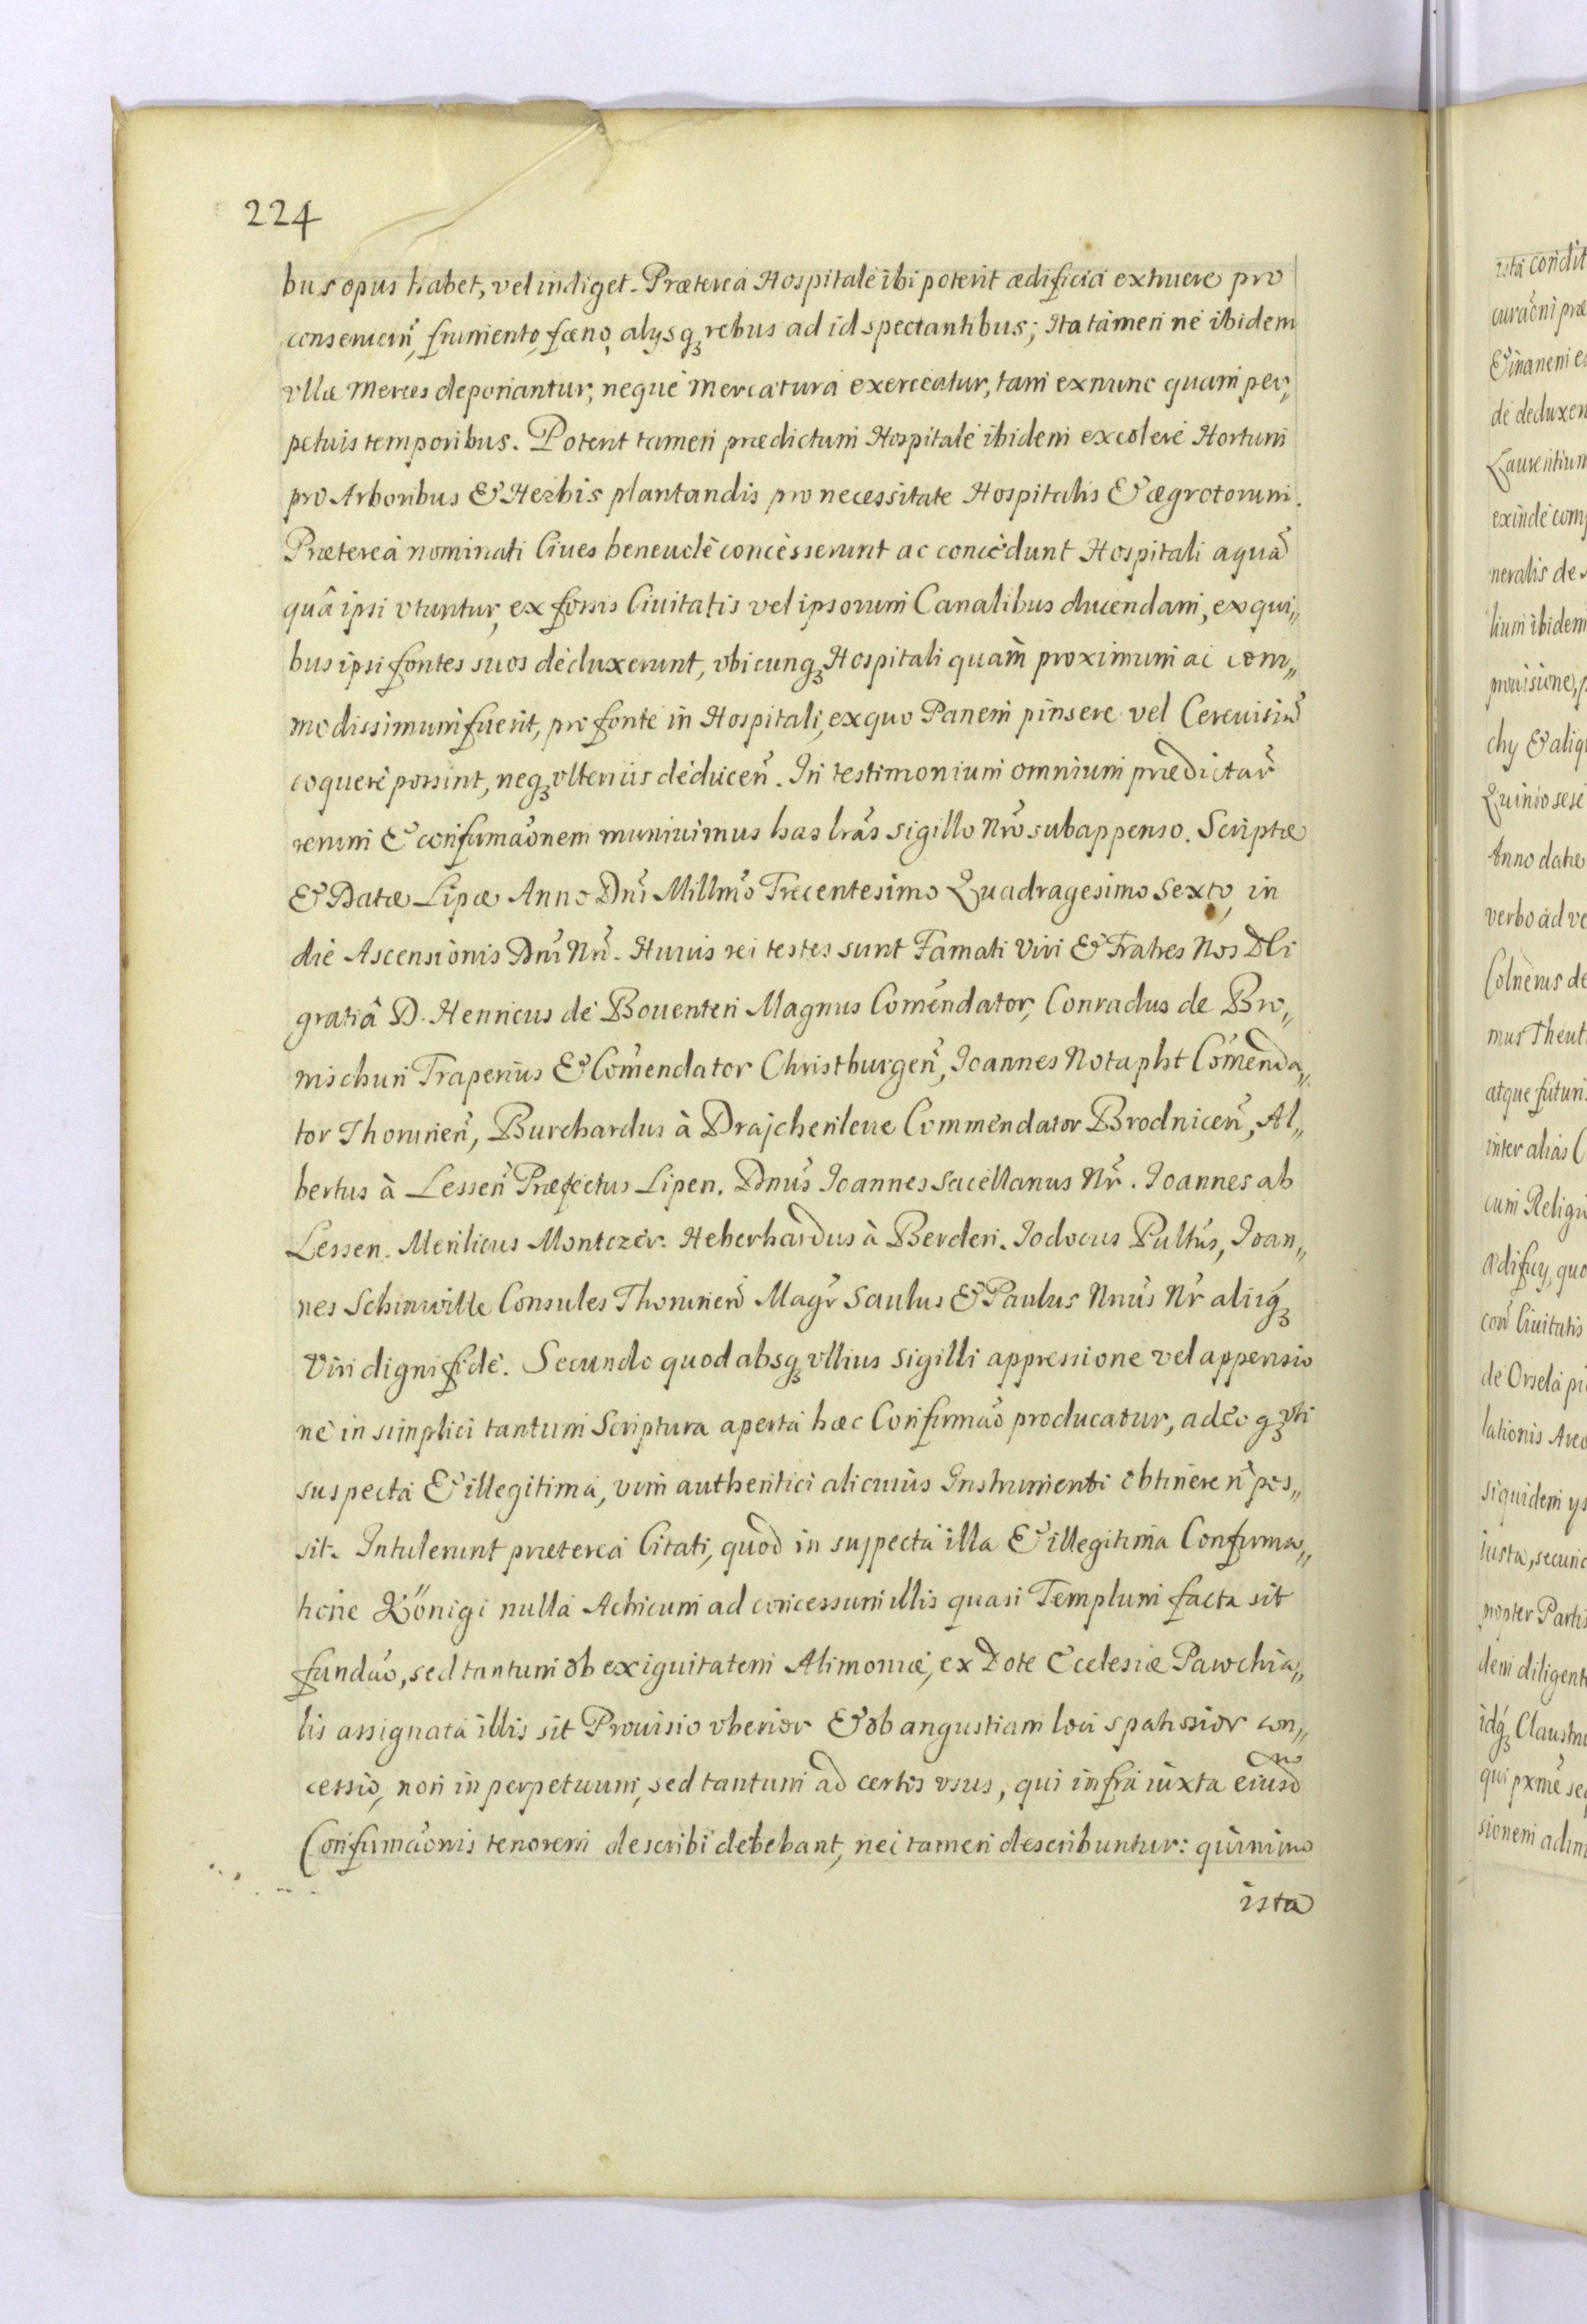 224
bus opus habet, vel indiget. Præterea Hospitale ibi poterit ædificia extruere pro
conseruan̄, frumento, fœno, alijsq₃ rebus ad id spectantibus; Ita tamen ne ibidem
vllæ Merces deponantur, neque Mercatura exerceatur, tam exnunc quam per„
petuis temporibus. Poterit tamen prædictum Hospitale ibidem excolere Hortum
pro Arboribus & Herbis plantandis pro necessitate Hospitalis & ægrotorum.
Prætereà nominati Ciues beneuolè concesserunt ac concedunt Hospitali aquā
quâ ipsi vtuntur, ex fossis Ciuitatis vel ipsorum Canalibus ducendam, ex qui„
bus ipsi fontes suos deduxerunt, vbicunq₃ Hospitali quam proximum ac com„
modissimum fuerit, pro fonte in Hospitali, ex quo Panem pinsere vel Cereuisiā
coquere possint, neq₃ vlterius deducen̄. In testimonium omnium prædictar̄
rerum & confirmaōnem muniuimus has lrās sigillo Nrō subappenso. Scriptæ
& Datæ Lipæ Anno Dnī Millmō Trecentesimo Quadragesimo Sexto, in
die Ascensionis Dnī Nrī. Huius rei testes sunt Famati Viri & Fratres Nos Dli
gratiâ D. Henricus de Bouenten Magnus Comēndator, Conradus de Bro„
nischun Traperius & Comēndator Christburgen̄, Ioannes Notapht Comēnda„
tor Thorunen̄, Burchardus à Drajchenleue Commendator Brodnicen̄, Al„
bertus à Lessen Præfectus Lipen. Dnūs Ioannes Sacellanus Nr̄. Ioannes ab
Lessen. Menlicus Montczer. Heberhardus à Berden. Iodocus Pultus, Ioan„
nes Schinwille Consules Thorunen̄ Magr̄ Saulus & Paulus Nnūs Nr̄ aliiq₃
Viri digni fide. Secundo quod absq₃ vllius Sigilli appressione vel appensio
ne in simplici tantum Scriptura aperta hæc Confirmaō producatur, adeo q₃ vti
suspecta & illegitima, vim authentici alicuius Instrumenti obtinere n̄ pos„
sit. Intulerunt præterea Citati, quod in suspecta illa & illegitima Confirma„
tione Königi nulla Actricum ad concessum illis quasi Templum facta sit
fundaō, sed tantum ob exiguitatem Alimoniæ, ex Dote Ecclesiæ Parochia„
lis assignata illis sit Prouisio vberior & ob angustiam loci spatiosior con„
cessio, non in perpetuum, sed tantum ad certos vsus, qui infra iuxta eiusd
Confirmaōnis tenorem describi debebant, nec tamen describuntur: quinimo
ista